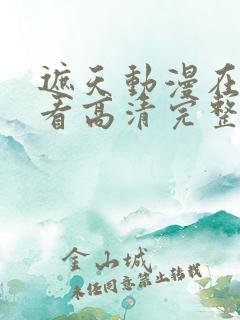 遮天動漫在
看高清完整
金山城
未经同意禁止转载